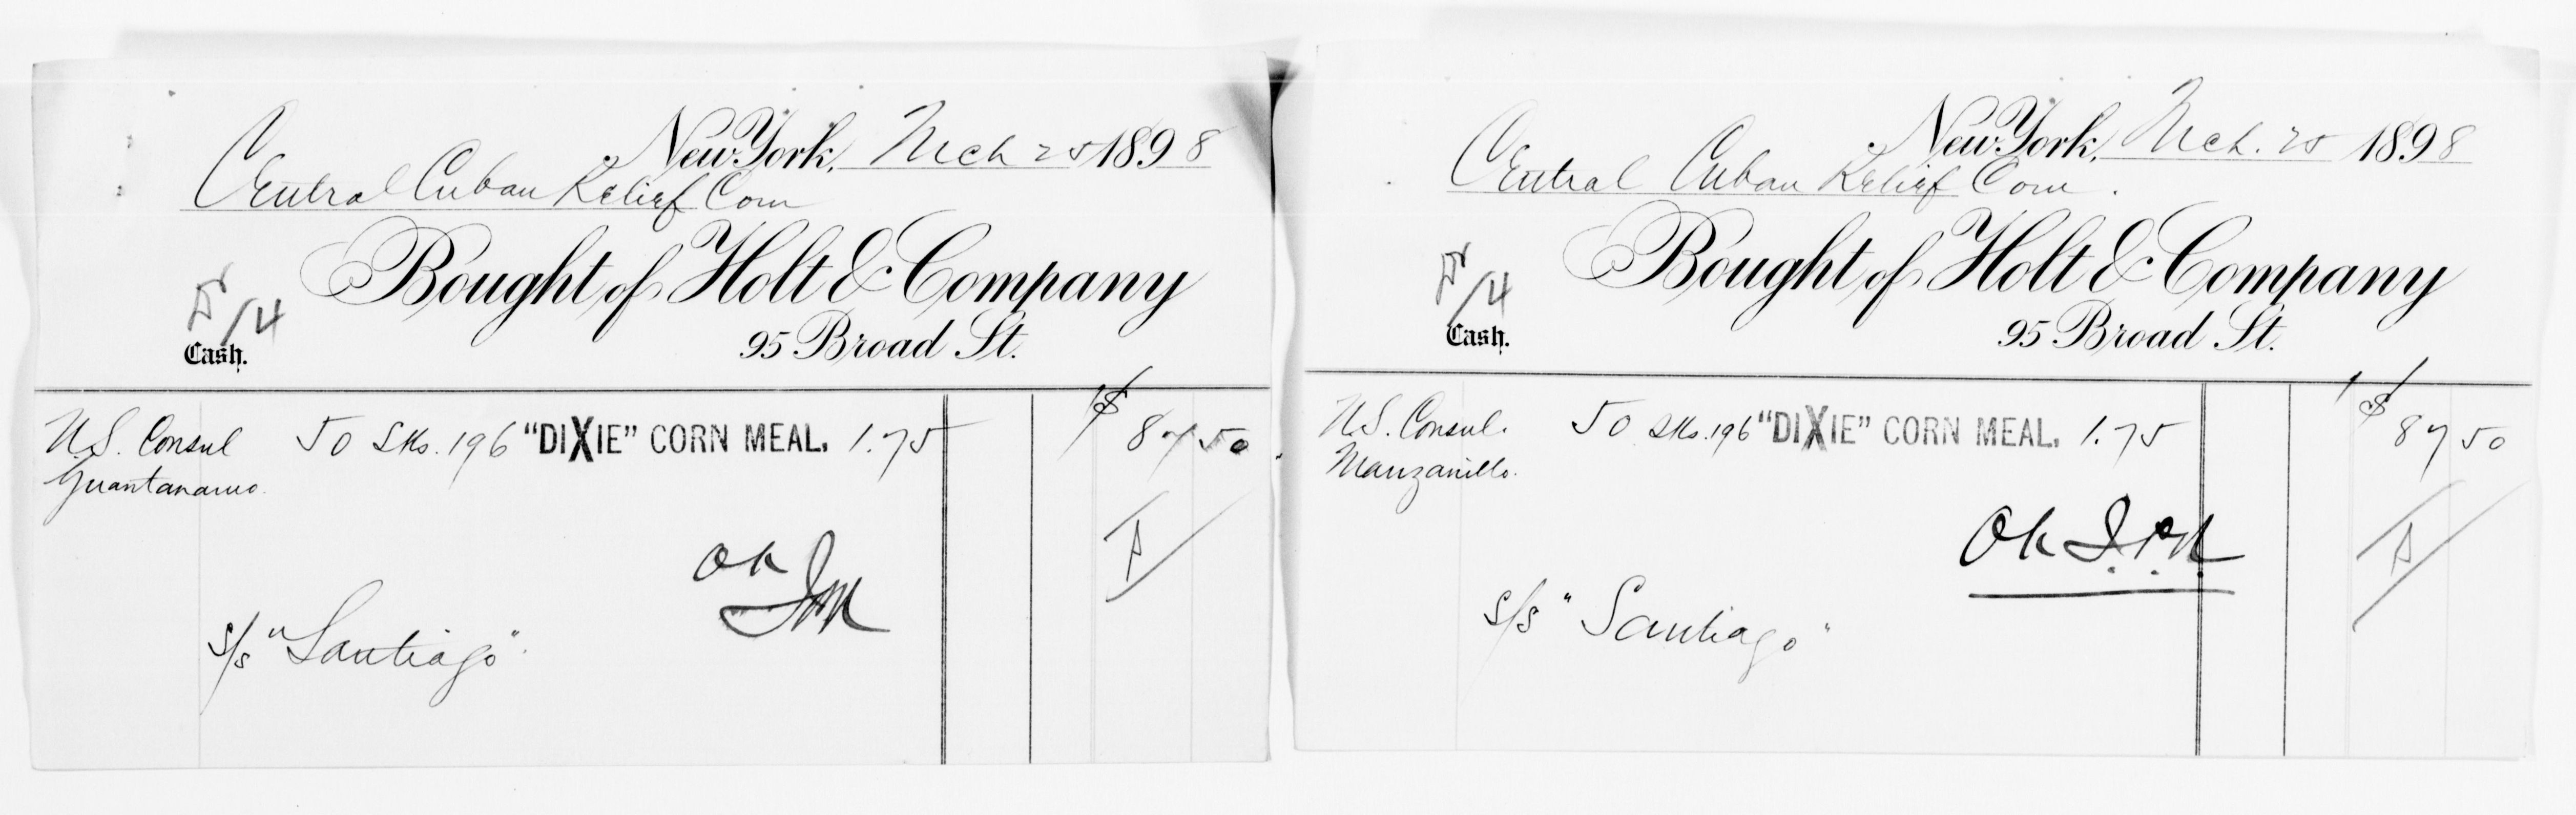 New York, Mch 25 1898
Central Cuban Relief Com
Bought of Holt & Company
95 Broad St.
/4
Cash.
$
U.S. Consul 50 Sks. 196 "DIXIE" CORN MEAL. 1.75 87 50
Guantanamo.
OK
S/s "Santiago".
New York, Mch. 25 1898
Central Cuban Relief Com.
Bought of Holt & Company
95 Broad St.
/4
Cash.
$
U.S. Consul. 50 Sks. 196 "DIXIE" CORN MEAL. 1.75 87 50
Manzanillo.
Ok
S/s "Santiago"